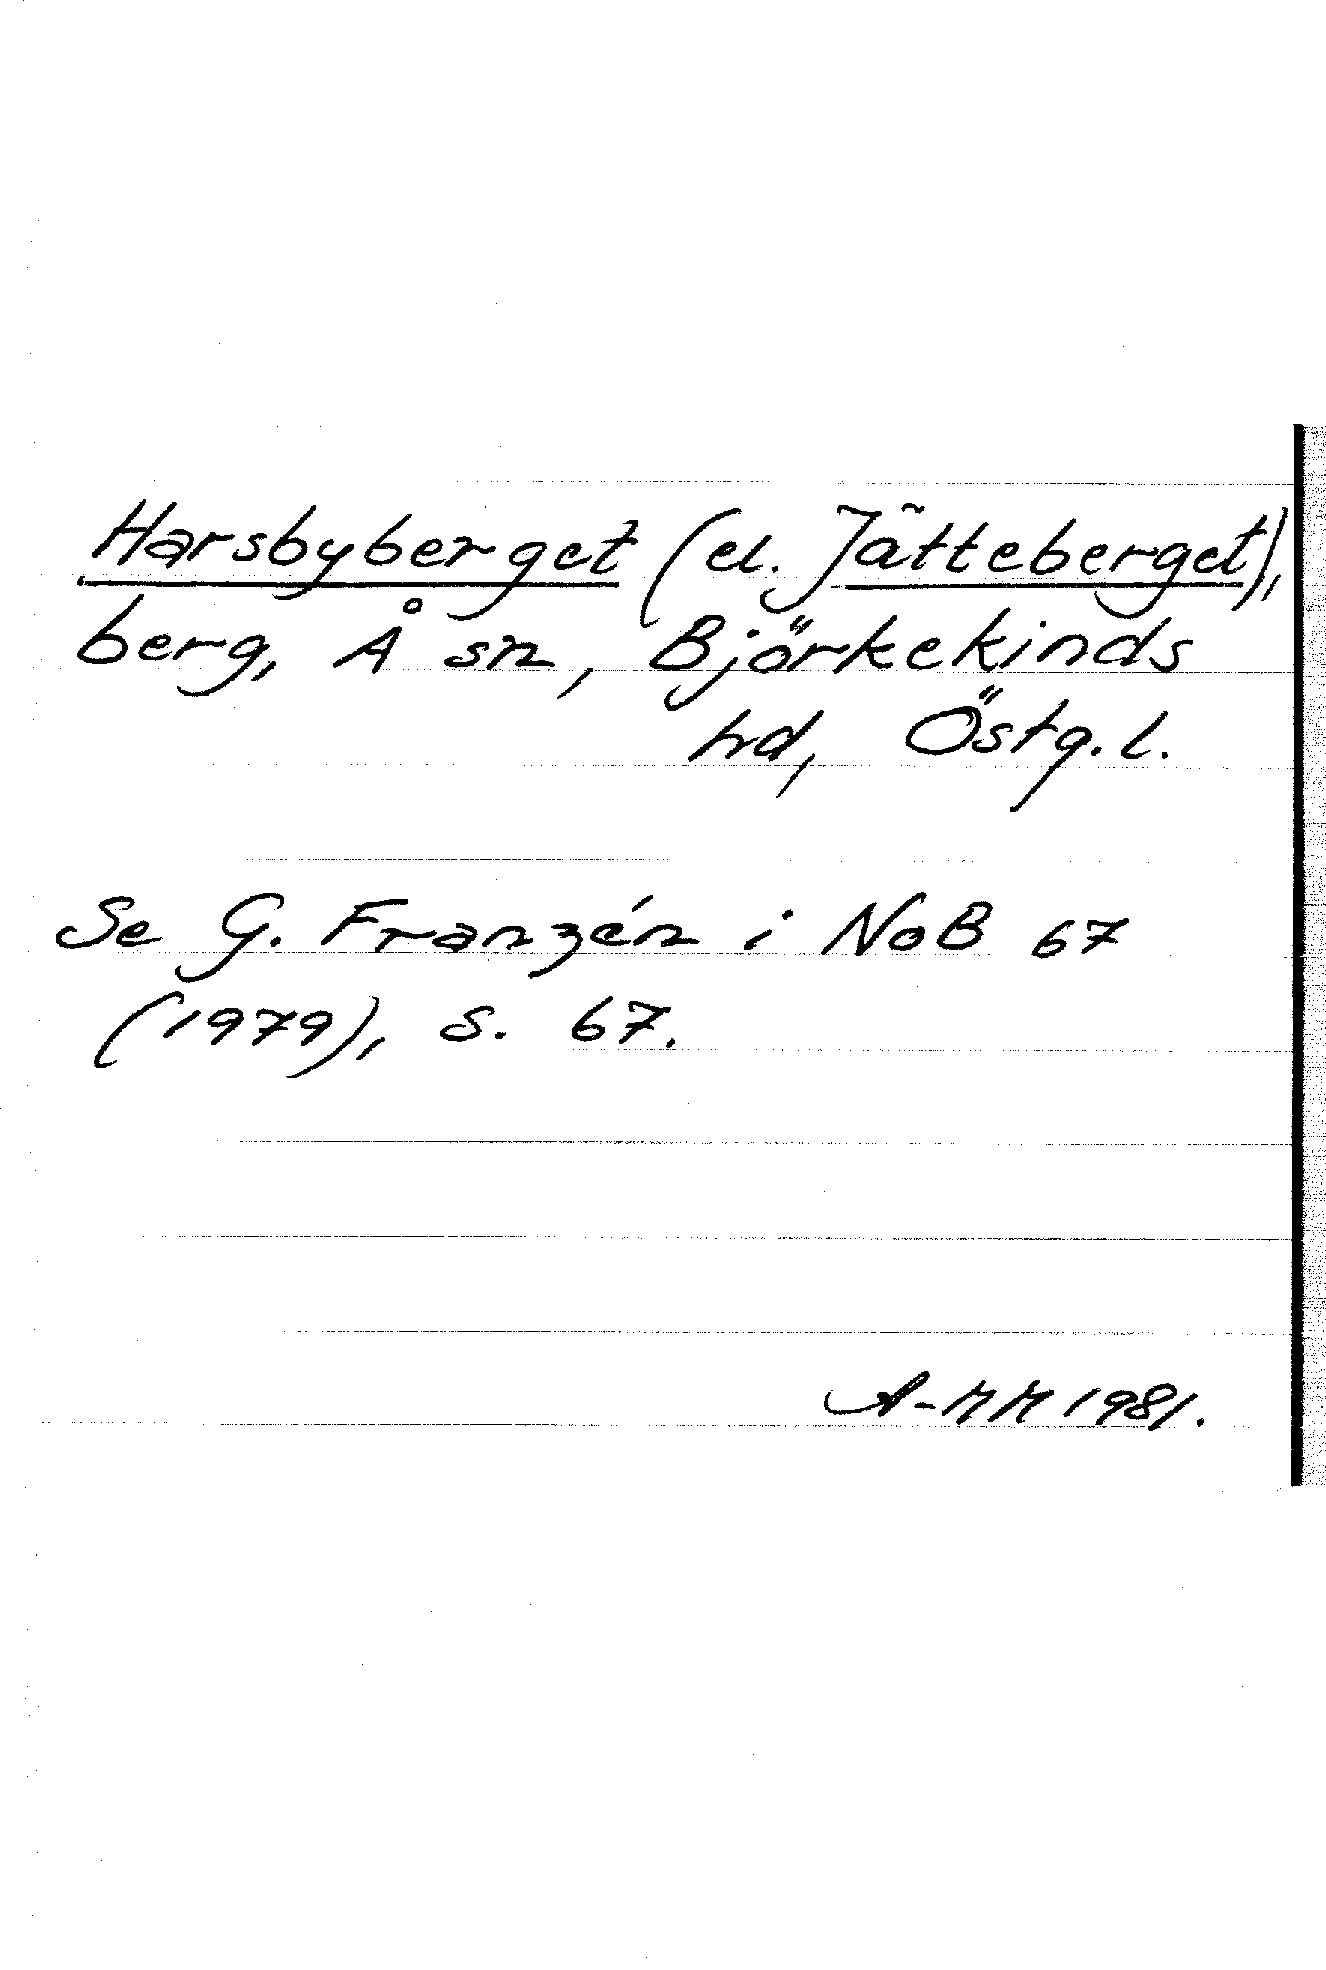 Harsbyberget (el. Jätteberget),
berg, Å sn, Björkekinds
hd, Östg. l.
Se G. Franzén i NoB 67
(1979), s. 67.
A-MM 1981.